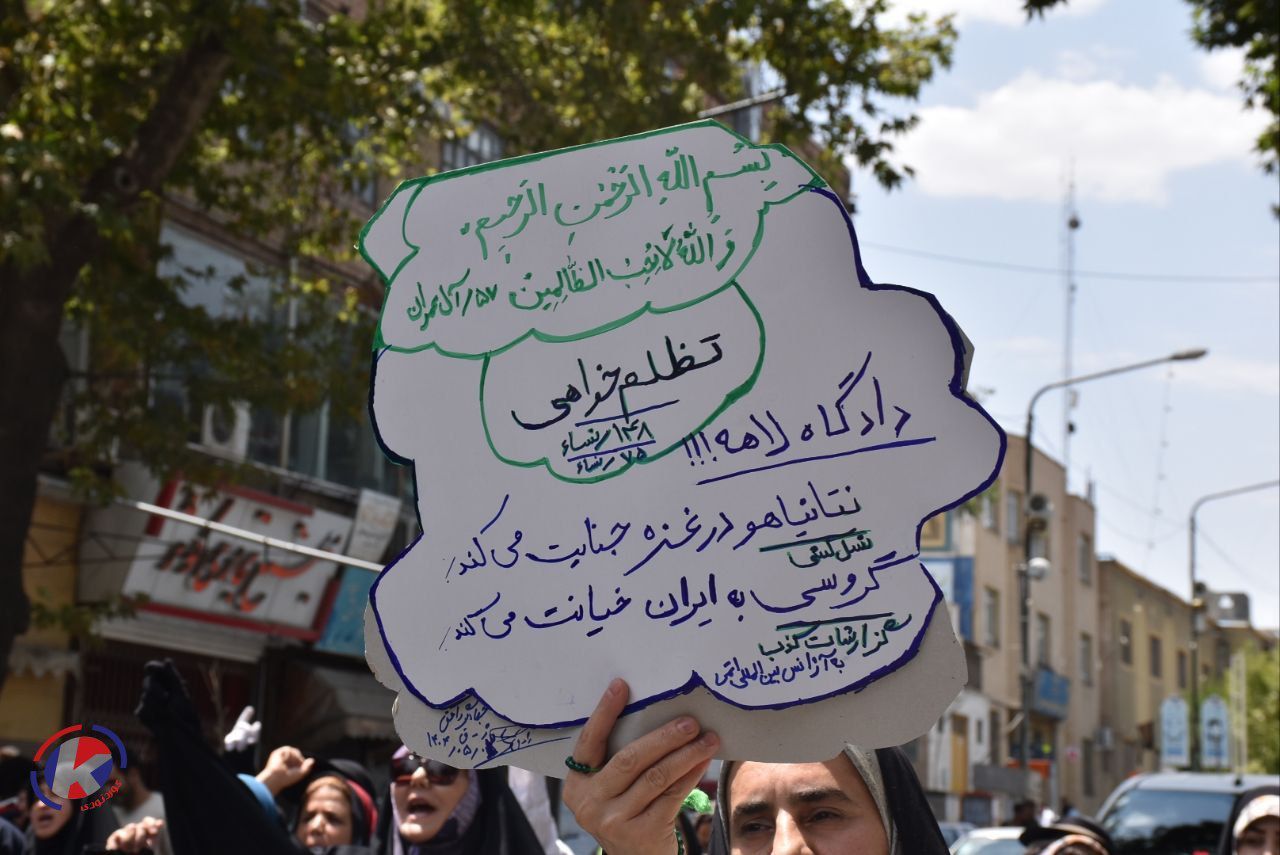 بِسْمِ اللهِ الرَّحْمنِ الرَّحِیمِ.
وَ اللهُ لَا یُحِبُّ الظّالِمِینَ ۵۷/آل عمران
تظلم خواهی
۱۴۸/نساء
۷۵/نساء
دادگاه لاهه!!!
نتانیاهو در غزه جنایت می کند.
نسل کشی
گروسی به ایران خیانت می کند.
گزارشات کذب
به آژانس بین المللی اتمی
کوردتودی